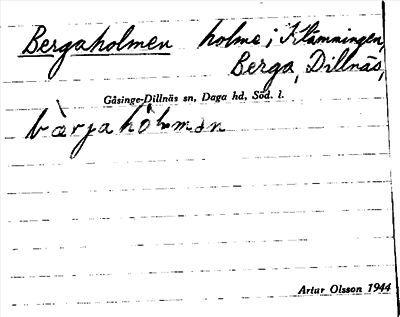 Bergaholmen holme i Klämmingen,
Berga, Dillnäs,
Gåsinge-Dillnäs sn, Daga hd, Söd. l.
bàrjahòlmən
Artur Olsson 1944